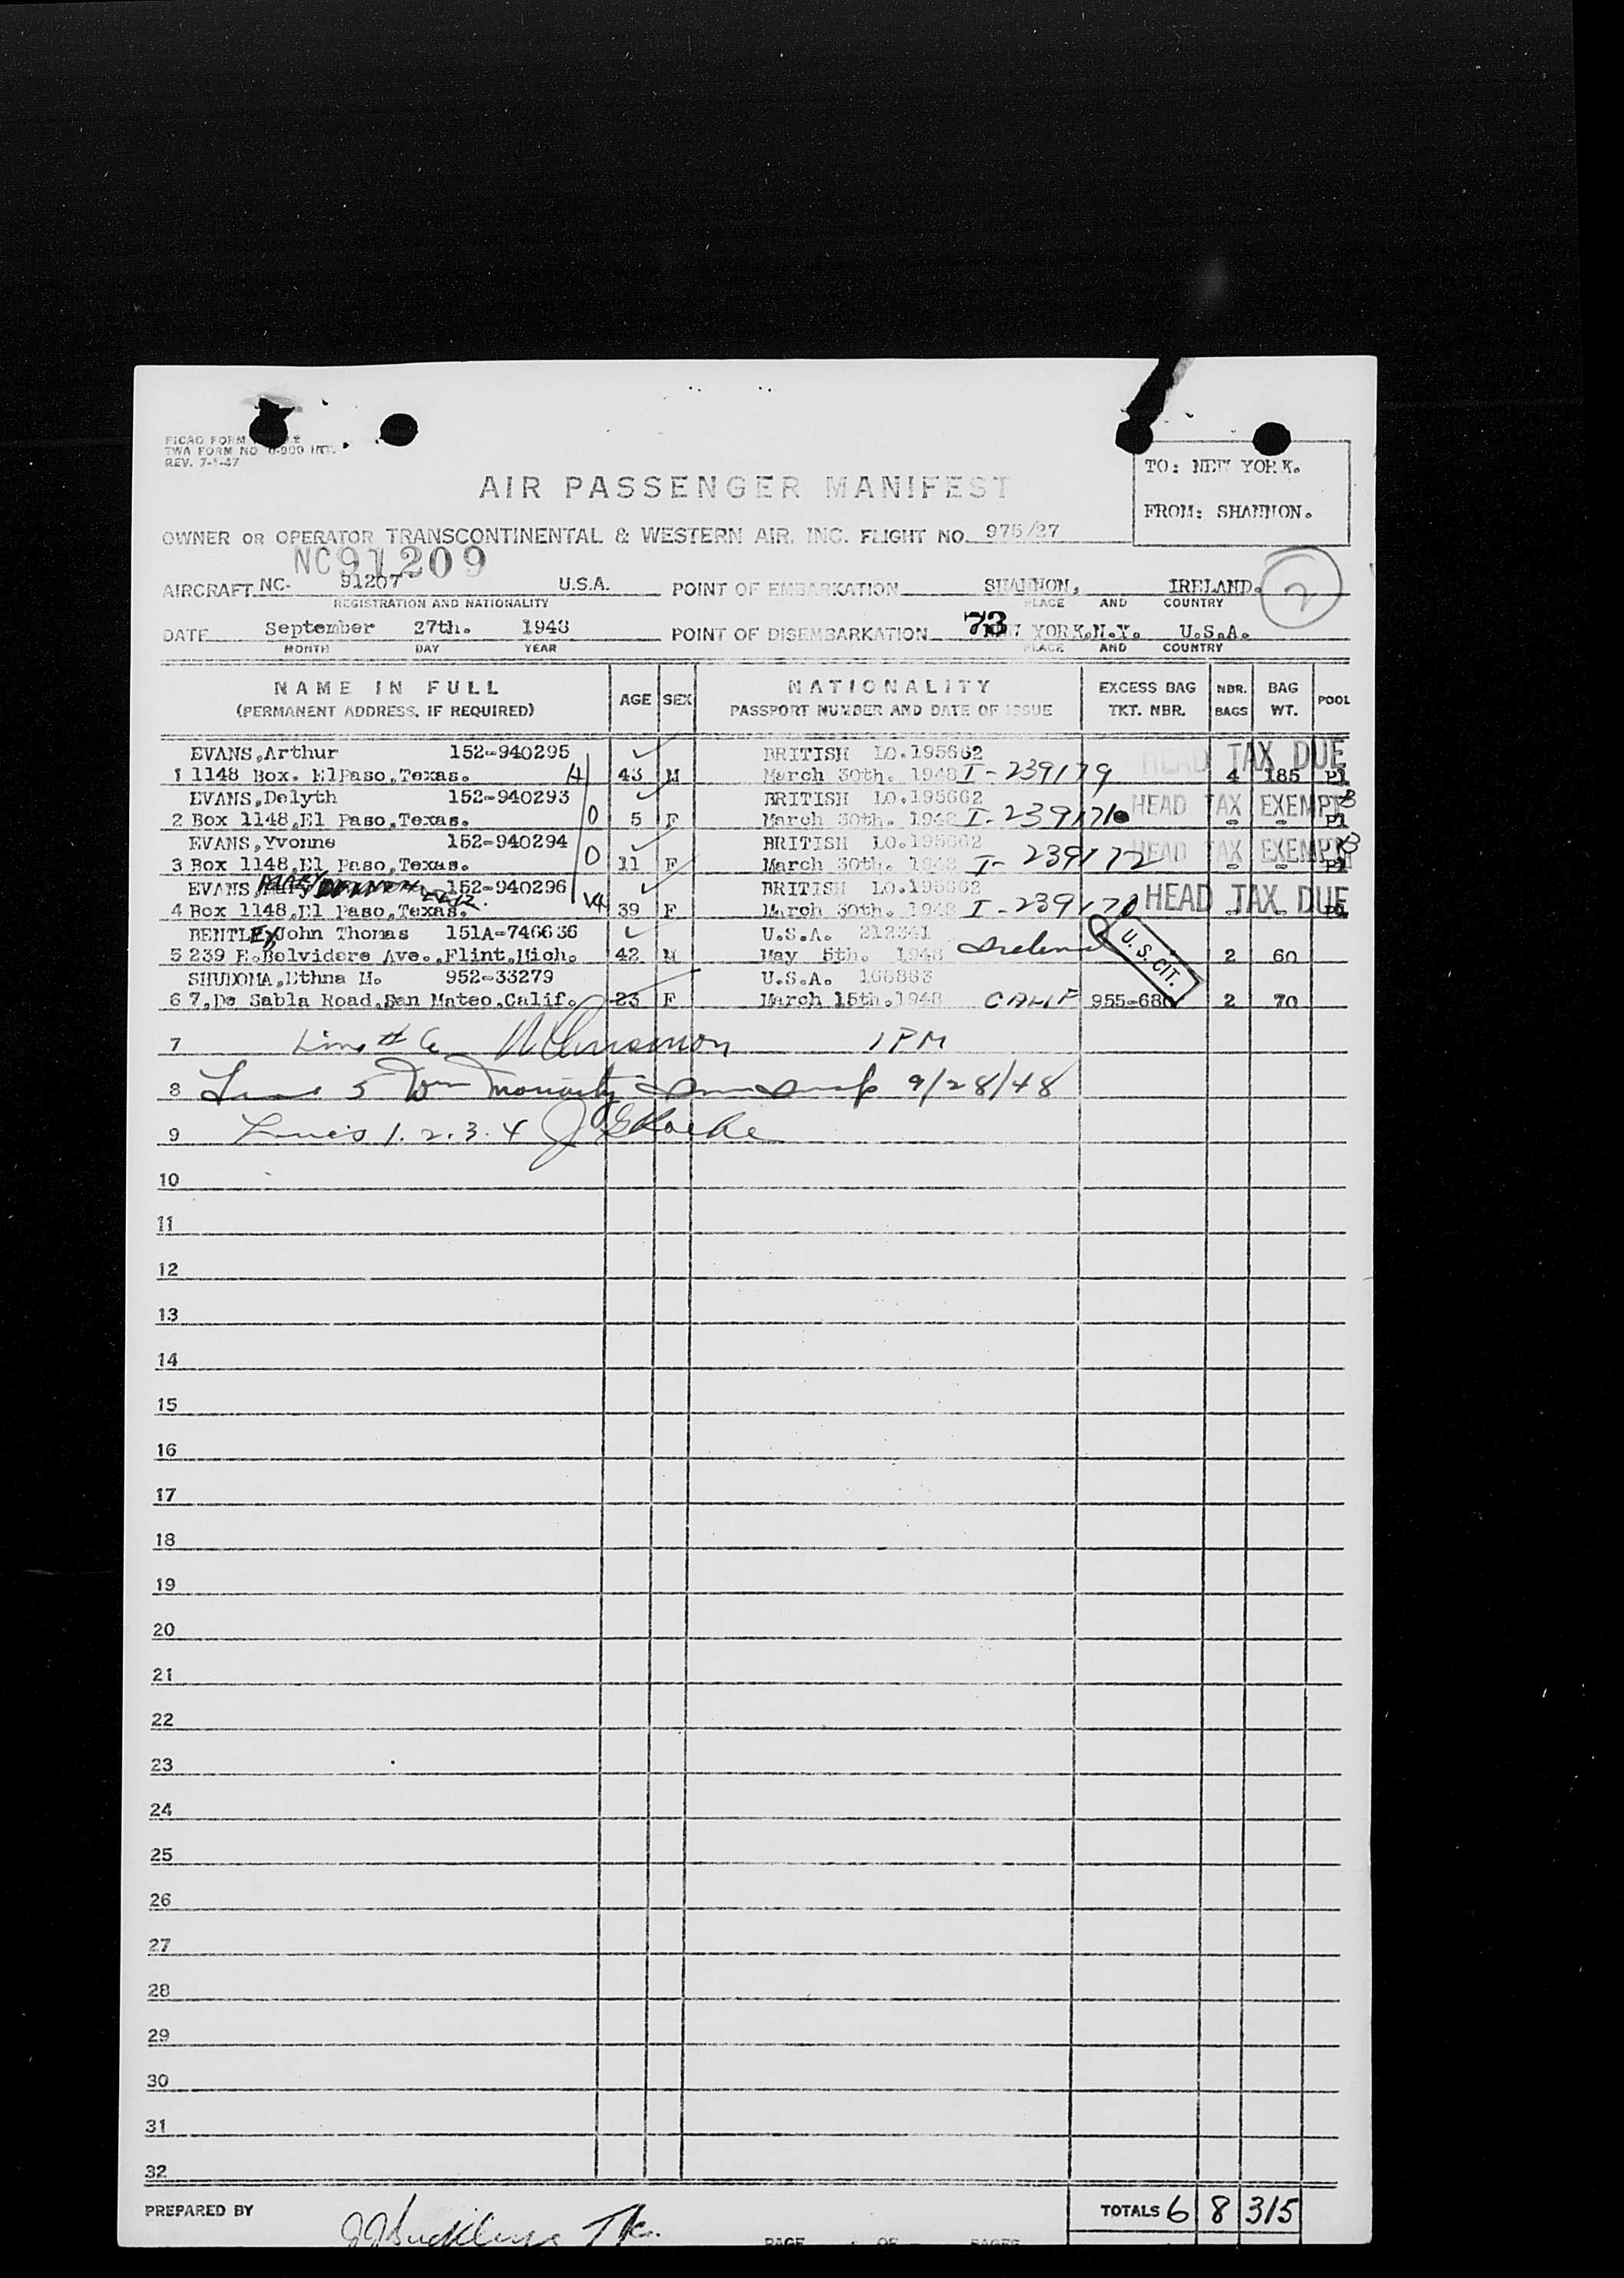 TWA FORM NO. 0-900 INT.
REV. 7-1-47
TO: NEW YORK.
FROM: SHANNON.
AIR PASSENGER MANIFEST
OWNER OR OPERATOR TRANSCONTINENTAL & WESTERN AIR, INC. FLIGHT NO. 975/27
NC91209
AIRCRAFT NC- 91207 U.S.A. POINT OF EMBARKATION SHANNON, IRELAND. 2
REGISTRATION AND NATIONALITY PLACE AND COUNTRY
DATE September 27th. 1948 POINT OF DISEMBARKATION 73 NEW YORK.N.Y. U.S.A.
MONTH DAY YEAR PLACE AND COUNTRY
NAME IN FULL AGE SEX NATIONALITY EXCESS BAG NBR. BAG POOL
(PERMANENT ADDRESS, IF REQUIRED) PASSPORT NUMBER AND DATE OF ISSUE TKT. NBR. BAGS WT.
EVANS,Arthur 152-940295 BRITISH LO.195662 HEAD TAX DUE
1 1148 Box. ElPaso,Texas. 43 M March 30th. 1948 I-239179 4 185 P1
EVANS,Delyth 152-940293 BRITISH LO.195662 HEAD TAX EXEMPT
2 Box 1148,El Paso,Texas. 0 5 F March 30th. 1948 - - P1
EVANS,Yvonne 152-940294 BRITISH LO.195662 HEAD TAX EXEMPT
3 Box 1148,El Paso,Texas. 0 11 F March 30th. 1948 I-239172 - - P1
EVANS, MARY 152-940296 BRITISH LO.195662 HEAD TAX DUE
4 Box 1148,El Paso,Texas. 39 F March 30th. 1948 - - P1
BENTLEY,John Thomas 151A-746636 U.S.A. 212341 Ireland U. S. CIT.
5 239 E.Belvidere Ave.,Flint,Mich. 42 M May 5th. 1948 2 60
SHUDOMA,Ethna M. 952-33279 U.S.A.
6 7,De Sabla Road,San Mateo,Calif. 23 F March 15th.1948 CALIF 2 70
7 Line # 6 1 PM
8 Line 5 Wm Moriarty 9/28/48
9 Lines 1.2.3.4
10
11
12
13
14
15
16
17
18
19
20
21
22
23
24
25
26
27
28
29
30
31
32
PREPARED BY TOTALS 6 8 315
PAGE OF PAGES